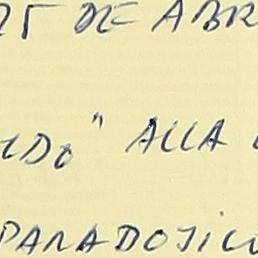 25 DE ABR
LDO" ALLA
PARADOJIC